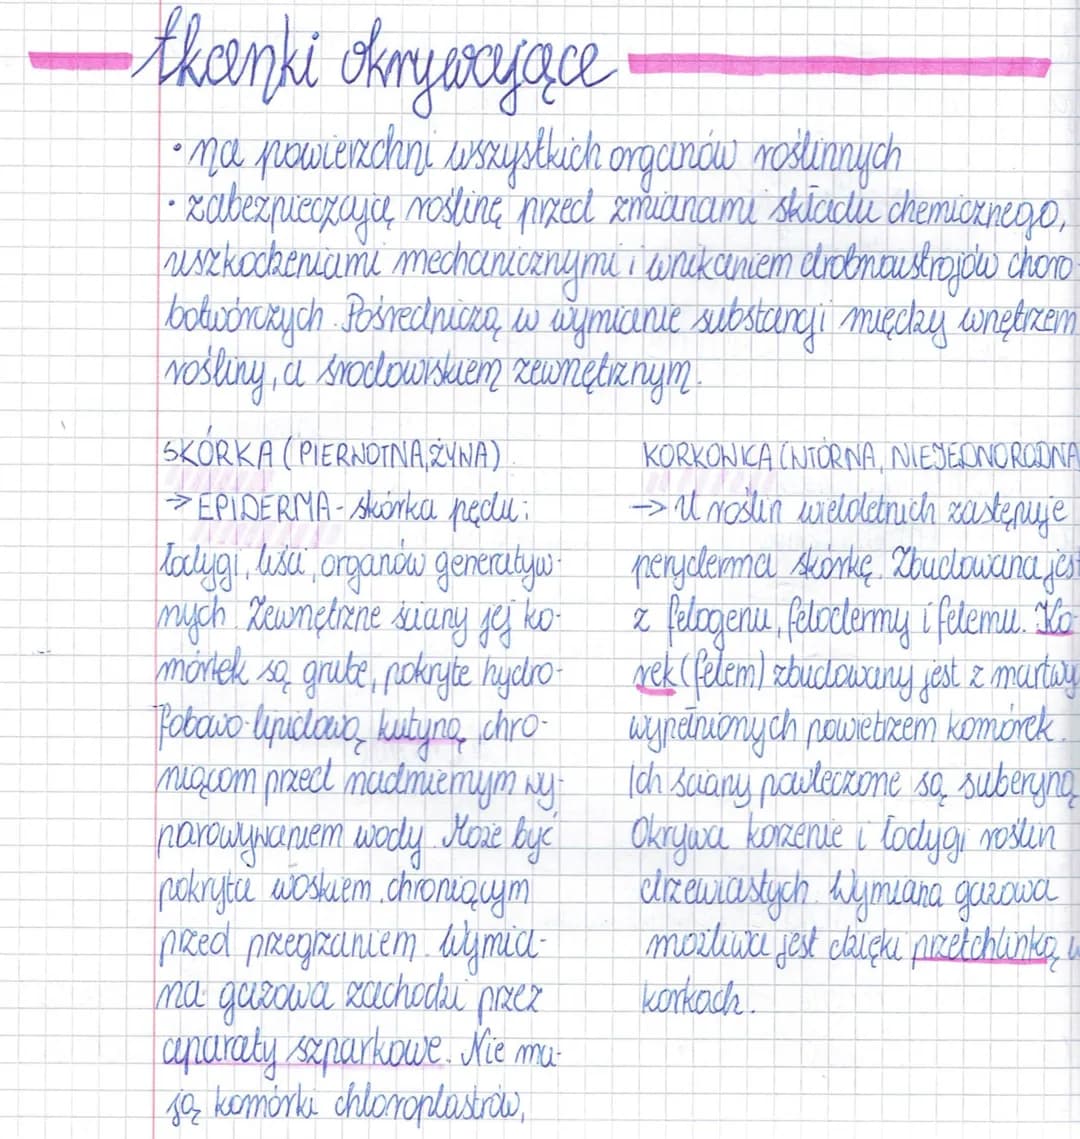 tkanki okrywające
• na powierzchni wszystkich organów roślinnych
• zabezpieczają roślinę przed zmianami składu chemicznego,
uszkodzeniami mechanicznymi i wnikaniem drobnoustrojów choro-
botwórczych. Pośredniczą w wymianie substancji między wnętrzem
rośliny, a środowiskiem zewnętrznym.
SKÓRKA (PIERWOTNA, ŻYWA)
→ EPIDERMA - skórka pędu:
łodygi, liści, organów generatyw-
nych. Zewnętrzne ściany jej ko-
mórek są grube, pokryte hydro-
fobowo-lipidową kutyną, chro-
niącom przed nadmiernym wy-
parowywaniem wody. Może być
pokryta woskiem, chroniącym
przed przegrzaniem. Wymia-
na gazowa zachodzi przez
aparaty szparkowe. Nie ma-
ją komórki chloroplastów,
KORKOWICA (WTÓRNA, NIEJEDNORODNA
→ U roślin wieloletnich zastępuje
peryderma skórkę. Zbudowana jest
z felogenu, felodermy i felemu. Ko-
rek (felem) zbudowany jest z martwy
wypełnionych powietrzem komórek.
Ich ściany powleczone są suberyną
Okrywa korzenie i łodygi roślin
drzewiastych. Wymiana gazowa
możliwa jest dzięki przetchlinką w
korkach.